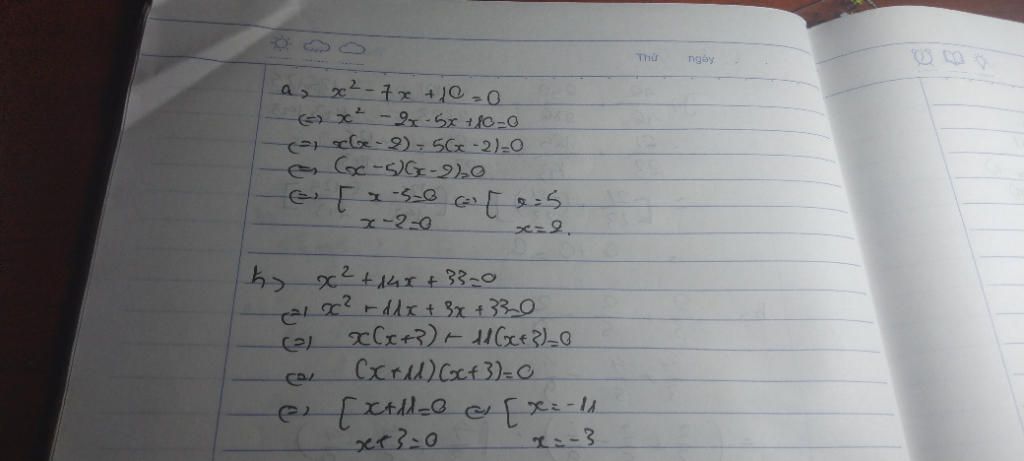 Thứ ngày
a> x² - 7x + 10 = 0
<=> x² - 2x - 5x + 10 = 0
<=> x(x - 2) - 5(x - 2) = 0
<=> (x - 5)(x - 2) = 0
<=> [ x - 5 = 0 <=> [ x = 5
x - 2 = 0 x = 2.
b> x² + 14x + 33 = 0
<=> x² + 11x + 3x + 33 = 0
<=> x(x + 3) + 11(x + 3) = 0
<=> (x + 11)(x + 3) = 0
<=> [ x + 11 = 0 <=> [ x = -11
x + 3 = 0 x = -3